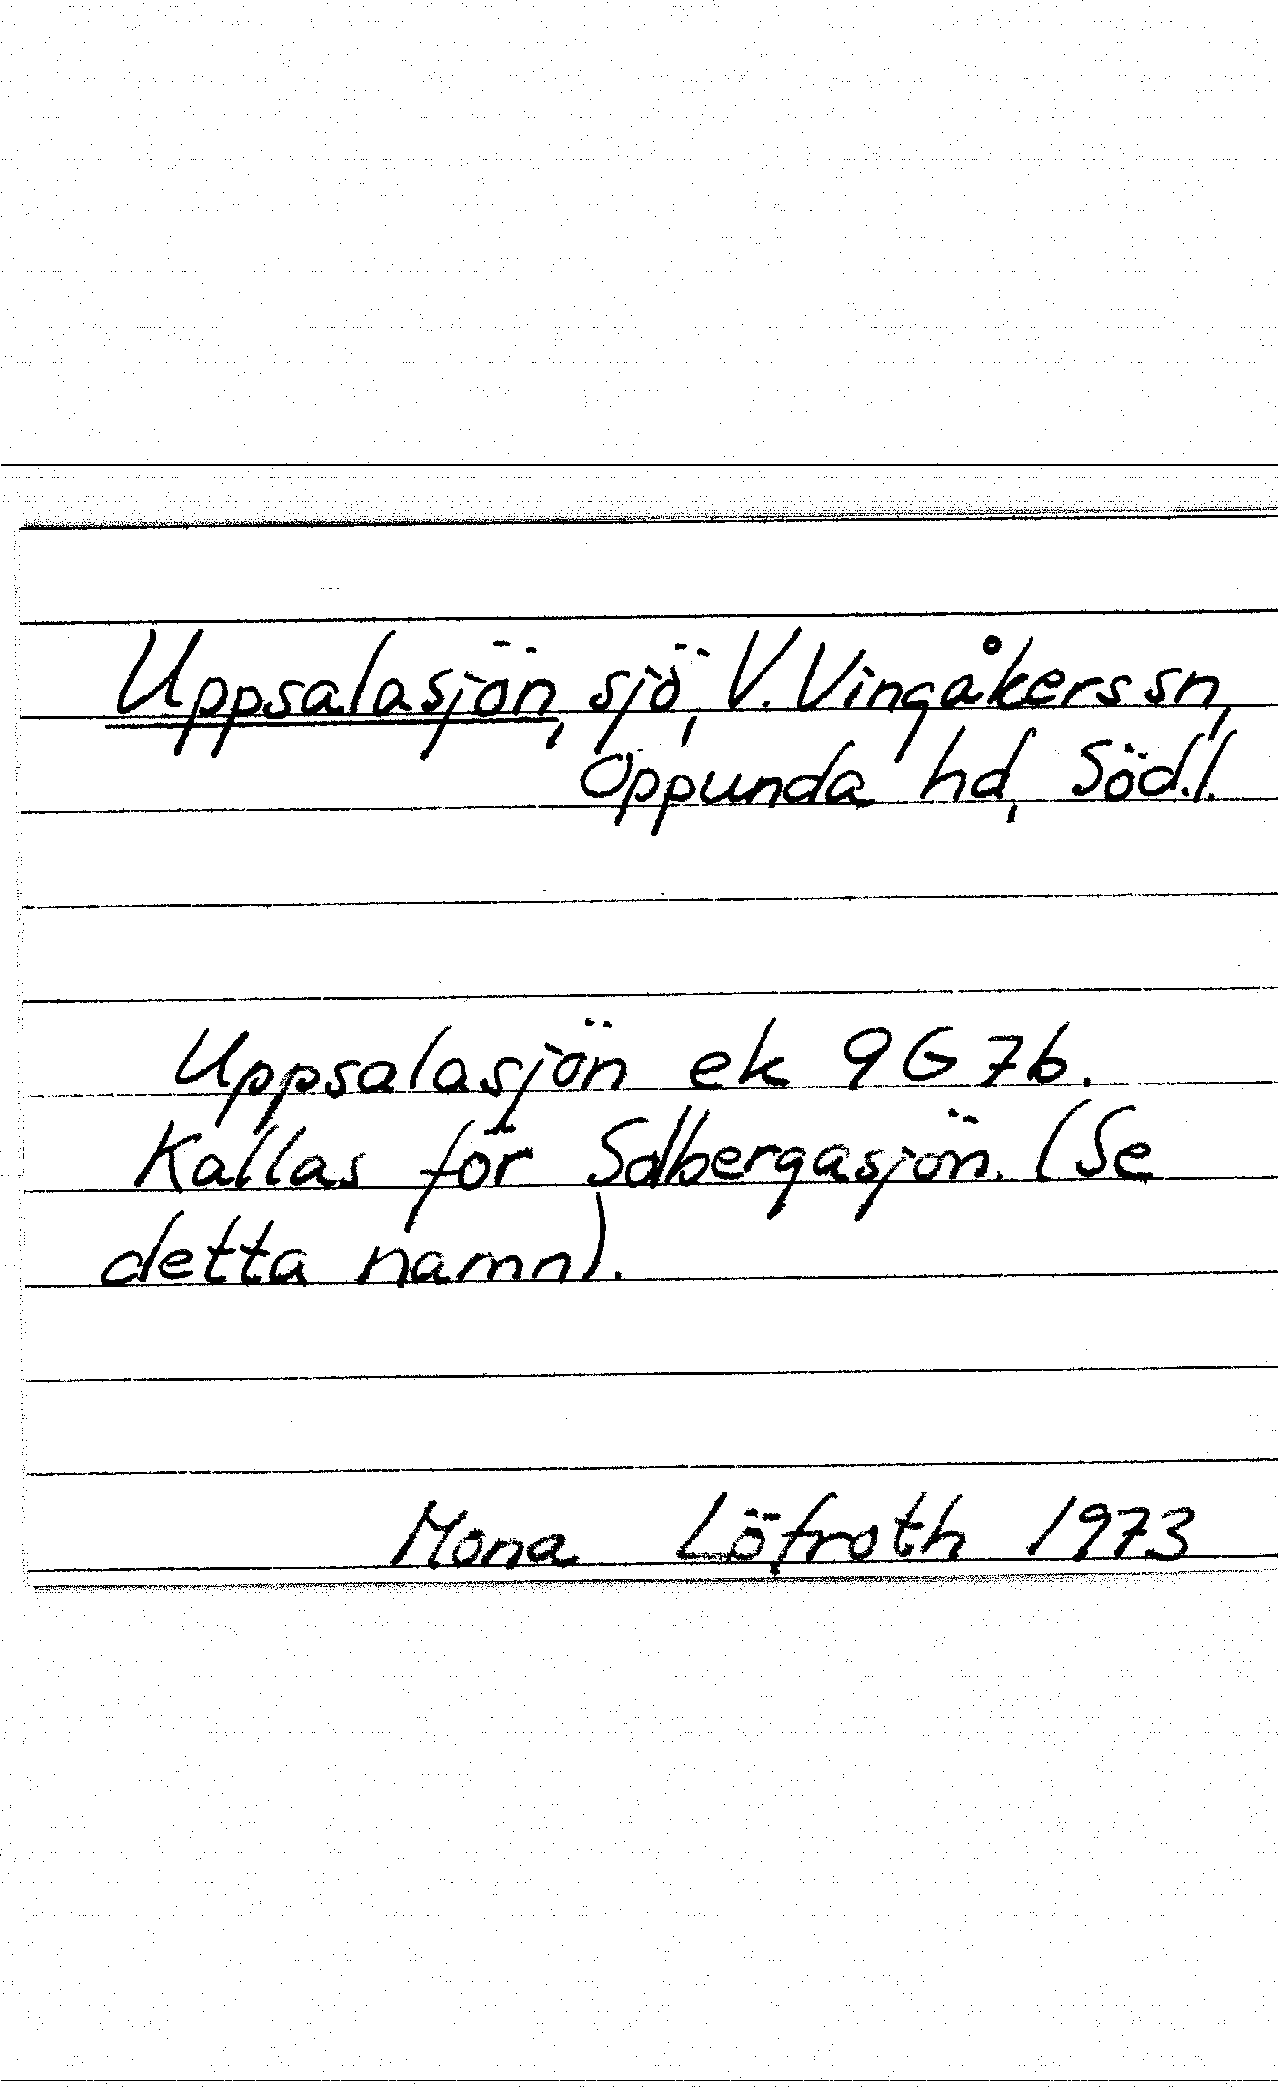 Uppsalasjön, sjö, V. Vingåkers sn,
Oppunda hd, Södl.
Uppsalasjön ek 9G7b.
Kallas för Solbergasjön. (Se
detta namn).
Mona Löfroth 1973